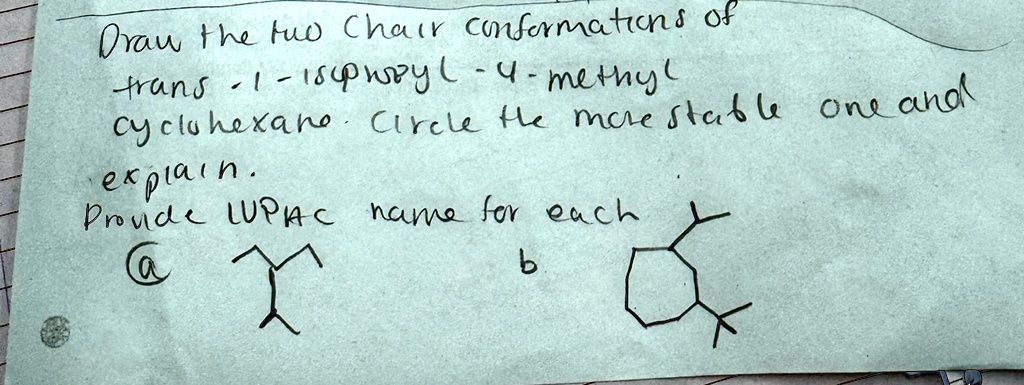 Draw the two Chair conformations of
trans - 1 - isopropyl - 4 - methyl
cyclohexane. Circle the more stable one and
explain.
Provide IUPAC name for each
a b